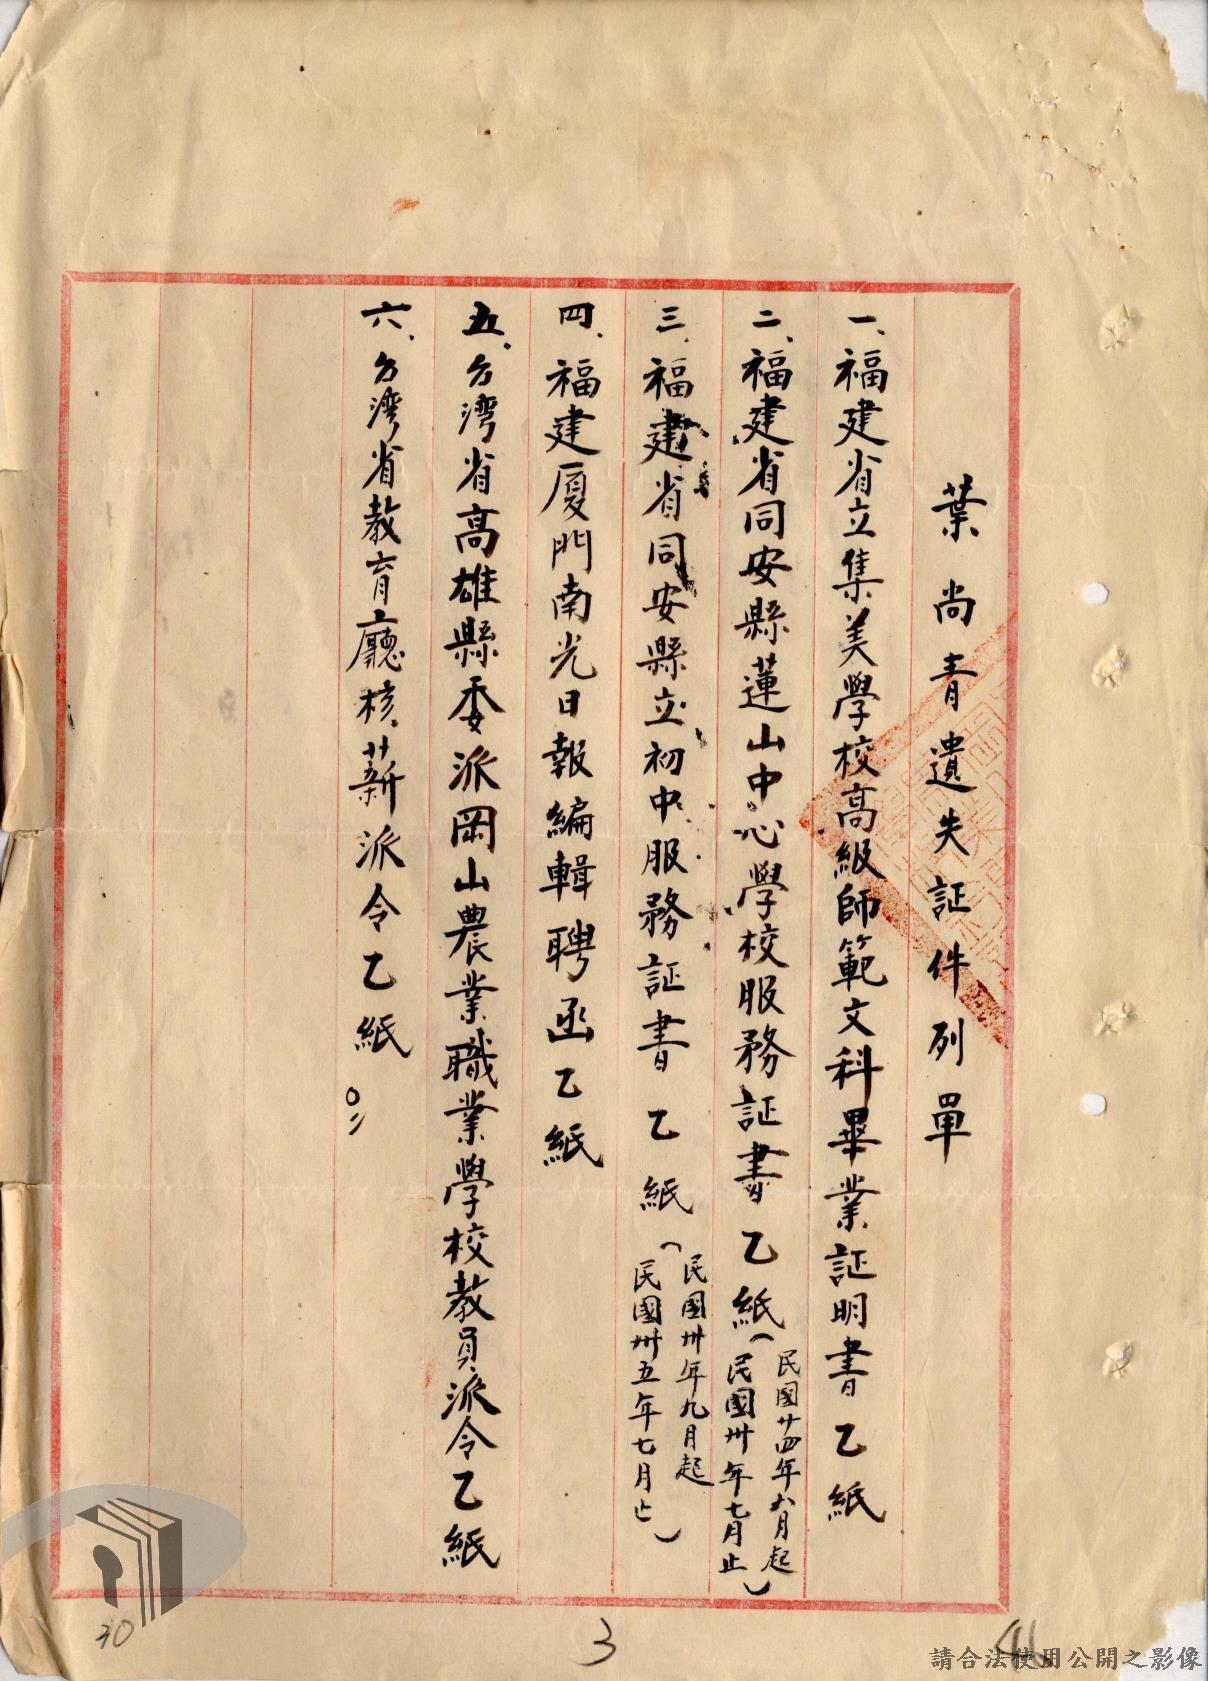 葉尚青遺失証件列單
一、福建省立集美學校高級師範文科畢業証明書乙紙
二、福建省同安縣蓮山中心學校服務証書乙紙(民國廿四年八月起
民國卅年七月止)
三、福建省同安縣立初中服務証書乙紙(民國卅年九月起
民國卅五年七月止)
四、福建厦門南光日報編輯聘函乙紙
五、台湾省高雄縣委派岡山農業職業學校教員派令乙紙
六、台湾省教育廳核薪派令乙紙
30
3
請合法使用公開之影像